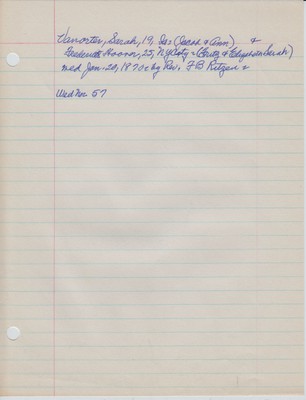 Vanorter, Sarah, 19, Isr (Jacob & Ann) &
Frederick Hoover, 25, NY City - (Fritz & Elizabeth Sarah)
med Jan. 20, 1870 c by Rev. F B Ritzer &
Wed No. 57